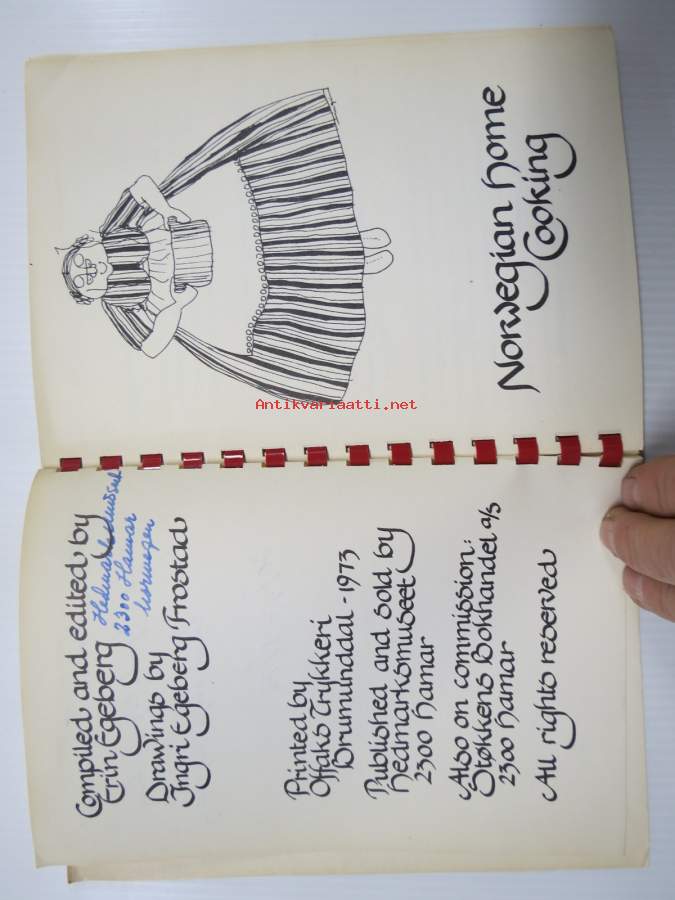 Compiled and edited by
Erin Egeberg
Hedmarksmuseet
2300 Hamar
Norwegen
Drawings by
Ingri Egeberg Frostad
Printed by
Offaks Trykkeri
Brumunddal - 1973
Published and sold by
Hedmarksmuseet
2300 Hamar
Also on commission:
Støkkens Bokhandel a/s
2300 Hamar
All rights reserved
Norwegian Home
Cooking
Antikvariaatti.net